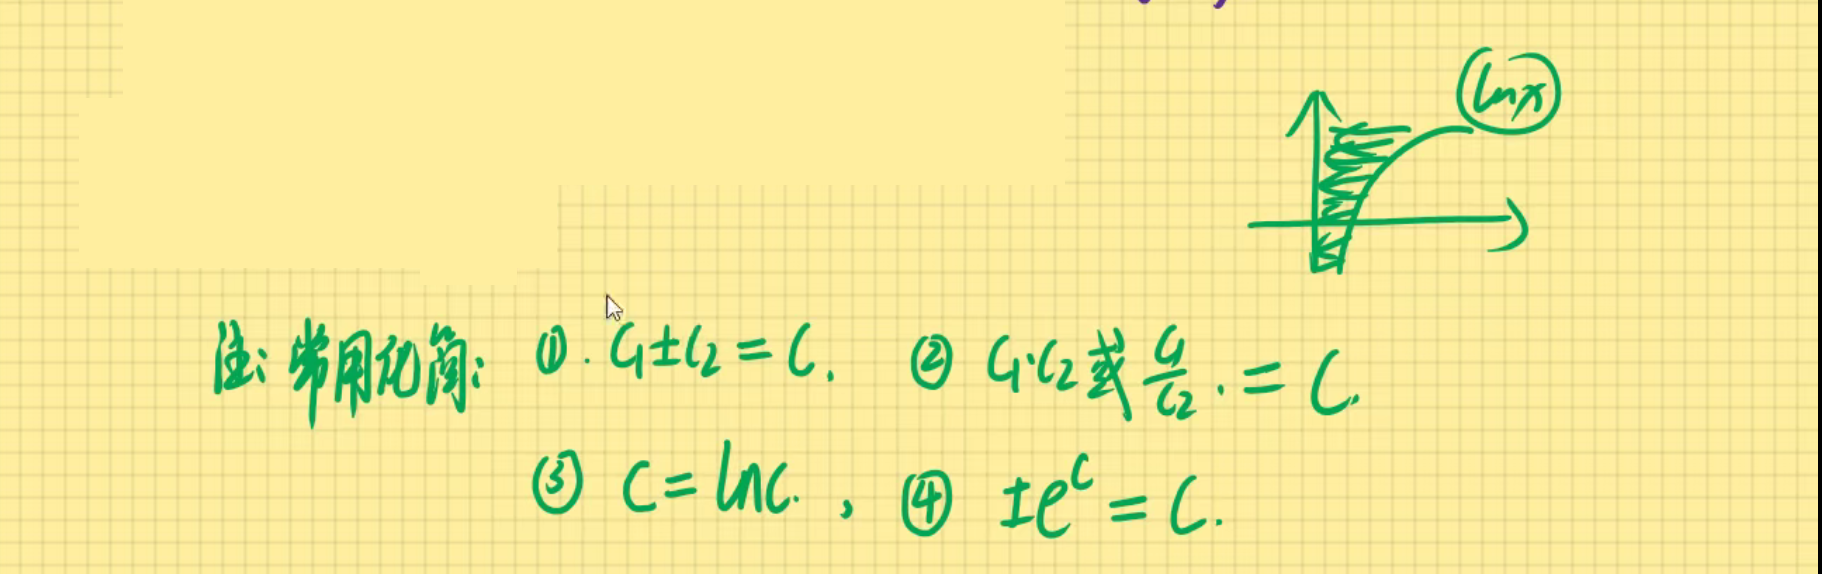 lnx
注: 常用化简: ①. C₁±C₂=C. ② C₁·C₂或C₁/C₂.=C.
③ C=lnC. , ④ ±e^C=C.